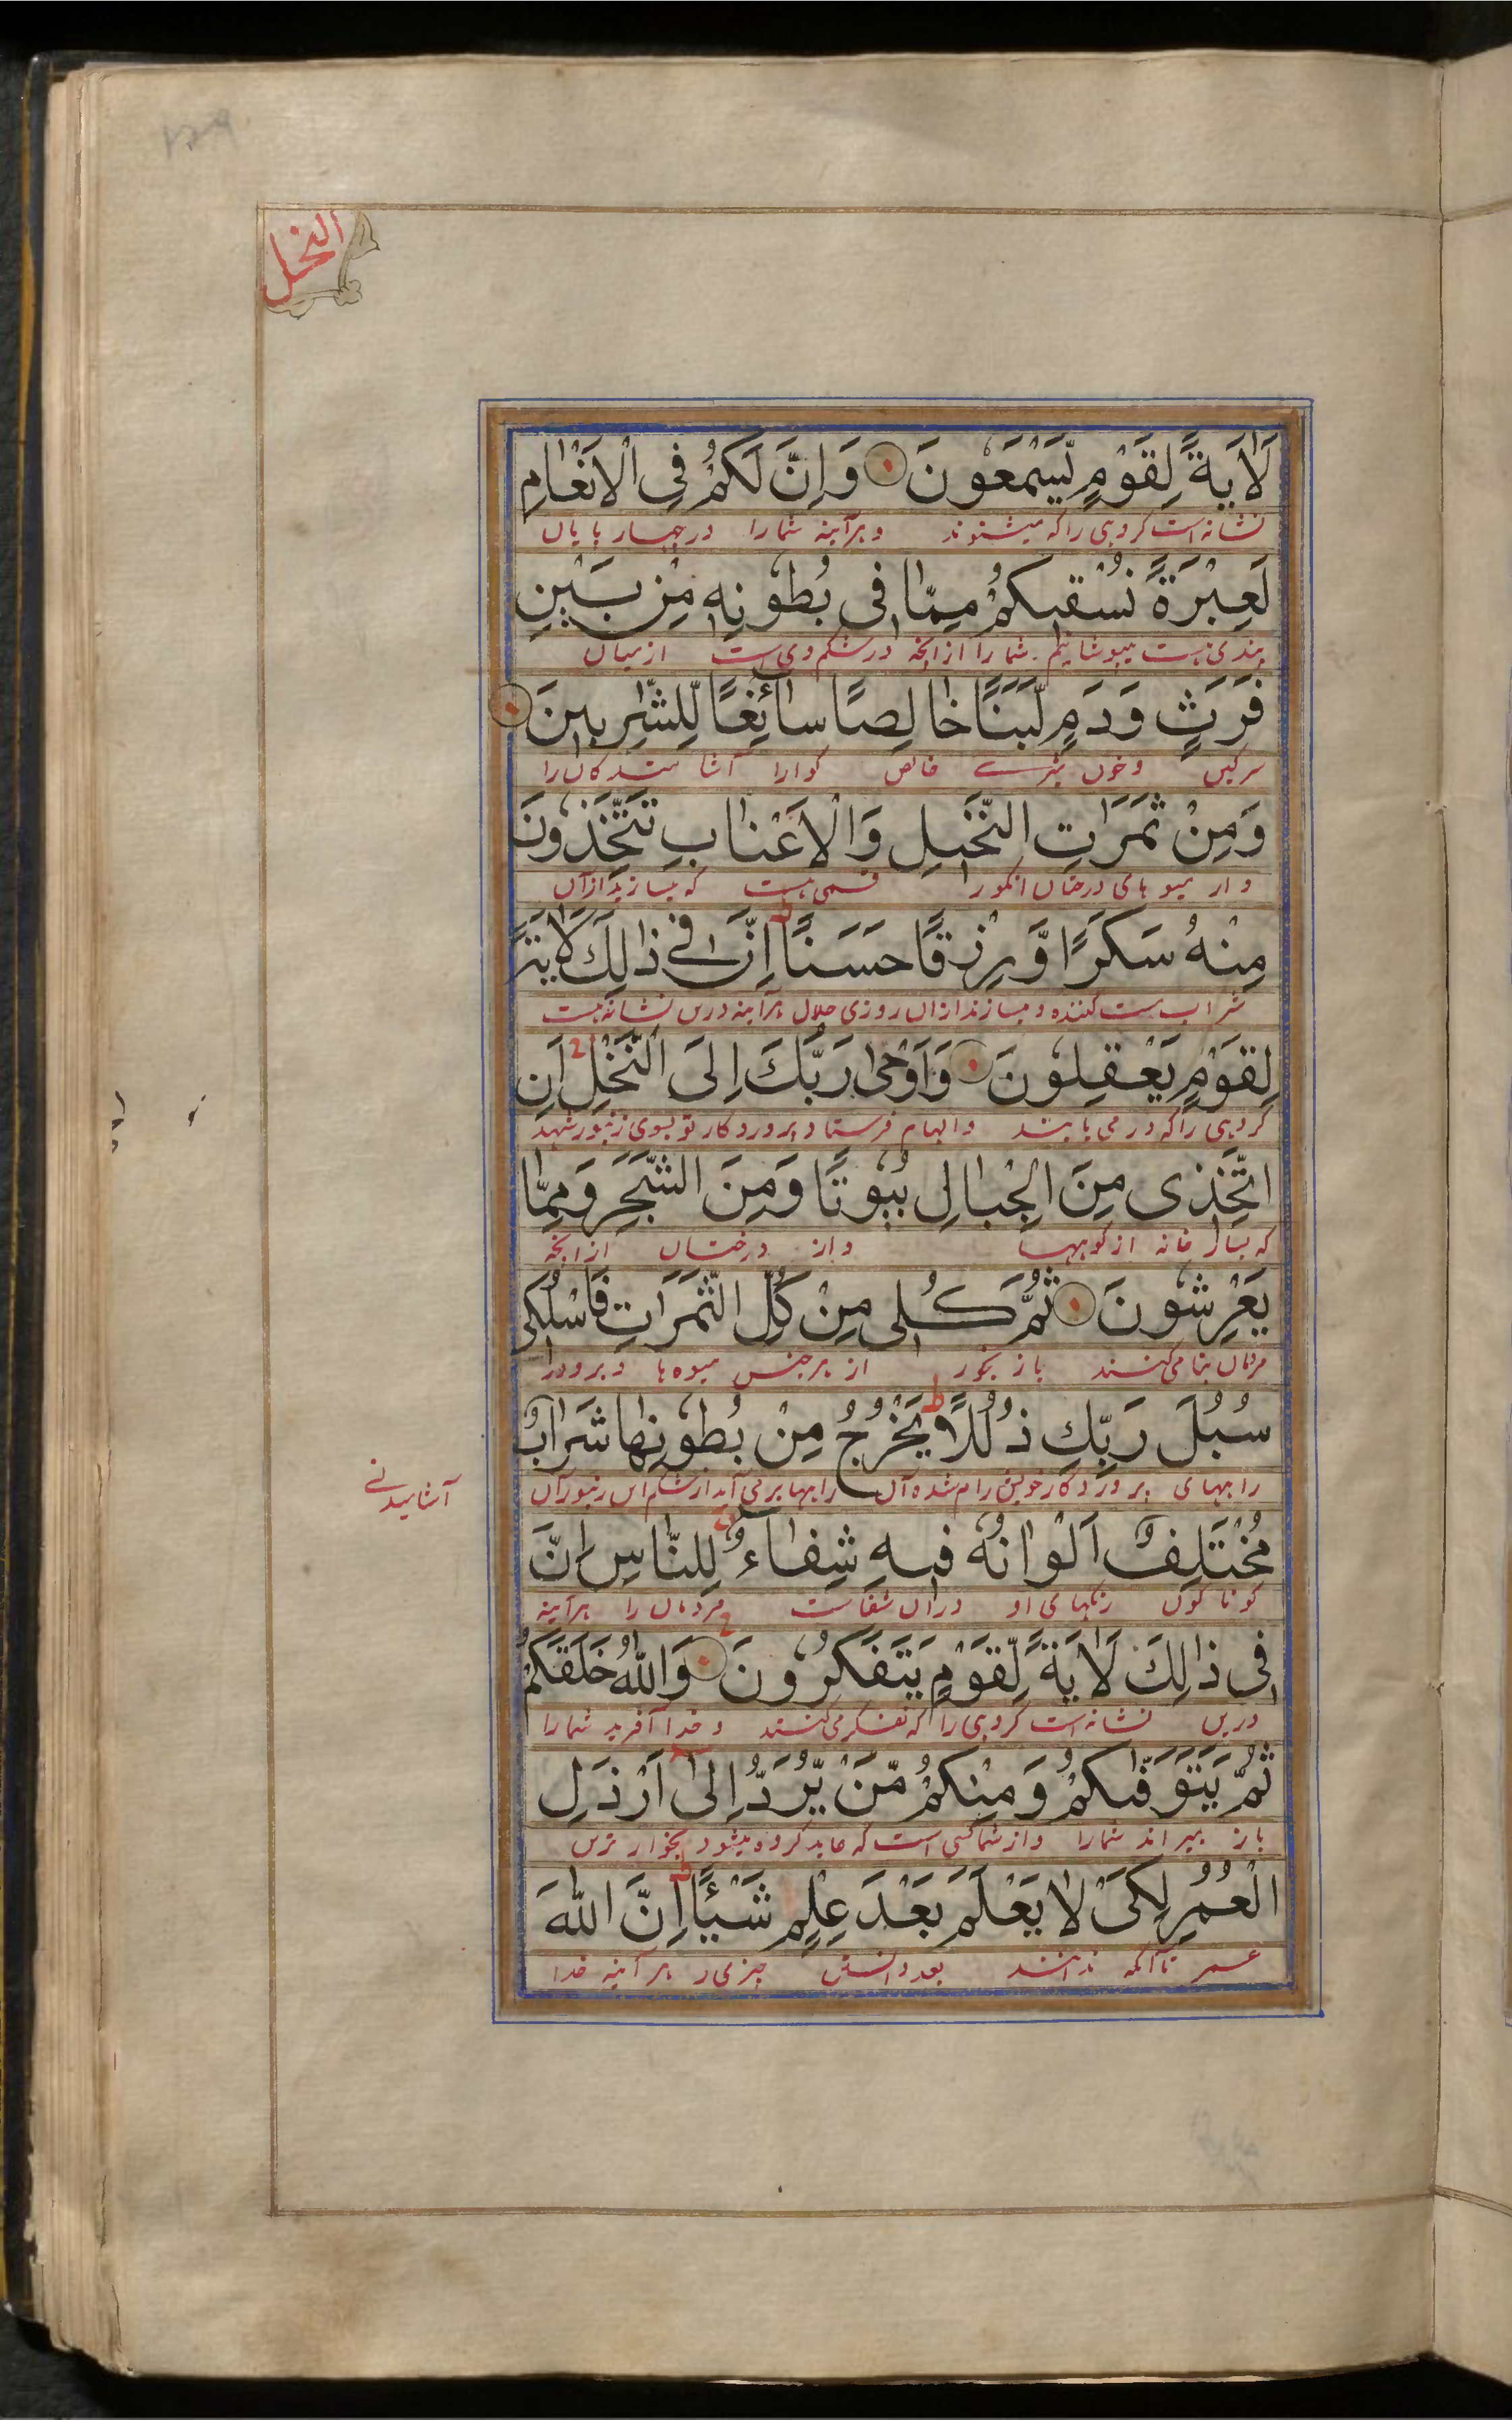 النحل
لَاٰيَةً لِّقَوْمٍ يَّسْمَعُوْنَ وَاِنَّ لَكُمْ فِى الْاَنْعَامِ
نشانه است گروهی را که میشنوند و هرآینه شما را در چهار پایان
لَعِبْرَةً نُسْقِيكُمْ مِمَّا فِى بُطُوْنِهٖ مِنْ بَيْنِ
پندی هست مینوشانیم شما را از آنچه در شکم وی است از میان
فَرْثٍ وَدَمٍ لَّبَنًا خَالِصًا سَائِغًا لِّلشّٰرِبِينَ
سرگین و خون شیرے خالص گوارا آشامندگان را
وَمِنْ ثَمَرَاتِ النَّخِيلِ وَالْاَعْنَابِ تَتَّخِذُوْنَ
و از میوهای درختان انگور قسمی هست که میسازید از آن
مِنْهُ سَكَرًا وَّرِزْقًا حَسَنًا اِنَّ فِى ذٰلِكَ لَاٰيَةً
شراب مست کننده و میسازند ازان روزی حلال هرآینه درین نشانه هست
لِقَوْمٍ يَعْقِلُوْنَ وَاَوْحٰى رَبُّكَ اِلَى النَّحْلِ اَنِ
گروهی را که در می یابند و الهام فرستاد پروردگار تو بسوی زنبور شهد
اتَّخِذِى مِنَ الْجِبَالِ بُيُوْتًا وَمِنَ الشَّجَرِ وَمِمَّا
که بساز خانه از کوهها و از درختان از آنچه
يَعْرِشُوْنَ ثُمَّ كُلِى مِنْ كُلِّ الثَّمَرَاتِ فَاسْلُكِى
مردمان بنا می کنند باز بخور از هر جنس میوه ها و برو در
سُبُلَ رَبِّكِ ذُلُلًا يَخْرُجُ مِنْ بُطُوْنِهَا شَرَابٌ
راههای پروردگار خویش رام شده آن راهها برمی آید از شکم این زنبوران
آشامیدنے
مُخْتَلِفٌ اَلْوَانُهٗ فِيهِ شِفَاءٌ لِلنَّاسِ اِنَّ
گوناگون رنگهای او دران شفاست مردمان را هرآینه
فِى ذٰلِكَ لَاٰيَةً لِّقَوْمٍ يَتَفَكَّرُوْنَ وَاللّٰهُ خَلَقَكُمْ
درین نشانه است گروهی را که تفکر می کنند و خدا آفرید شما را
ثُمَّ يَتَوَفّٰىكُمْ وَمِنْكُمْ مَّنْ يُّرَدُّ اِلٰى اَرْذَلِ
باز بمیراند شما را و از شما کسی است که عاید کرده میشود بخوار ترین
الْعُمُرِ لِكَىْ لَا يَعْلَمَ بَعْدَ عِلْمٍ شَيْئًا اِنَّ اللّٰهَ
عمر تا آنکه نداند بعد دانستن چیزی را هرآینه خدا